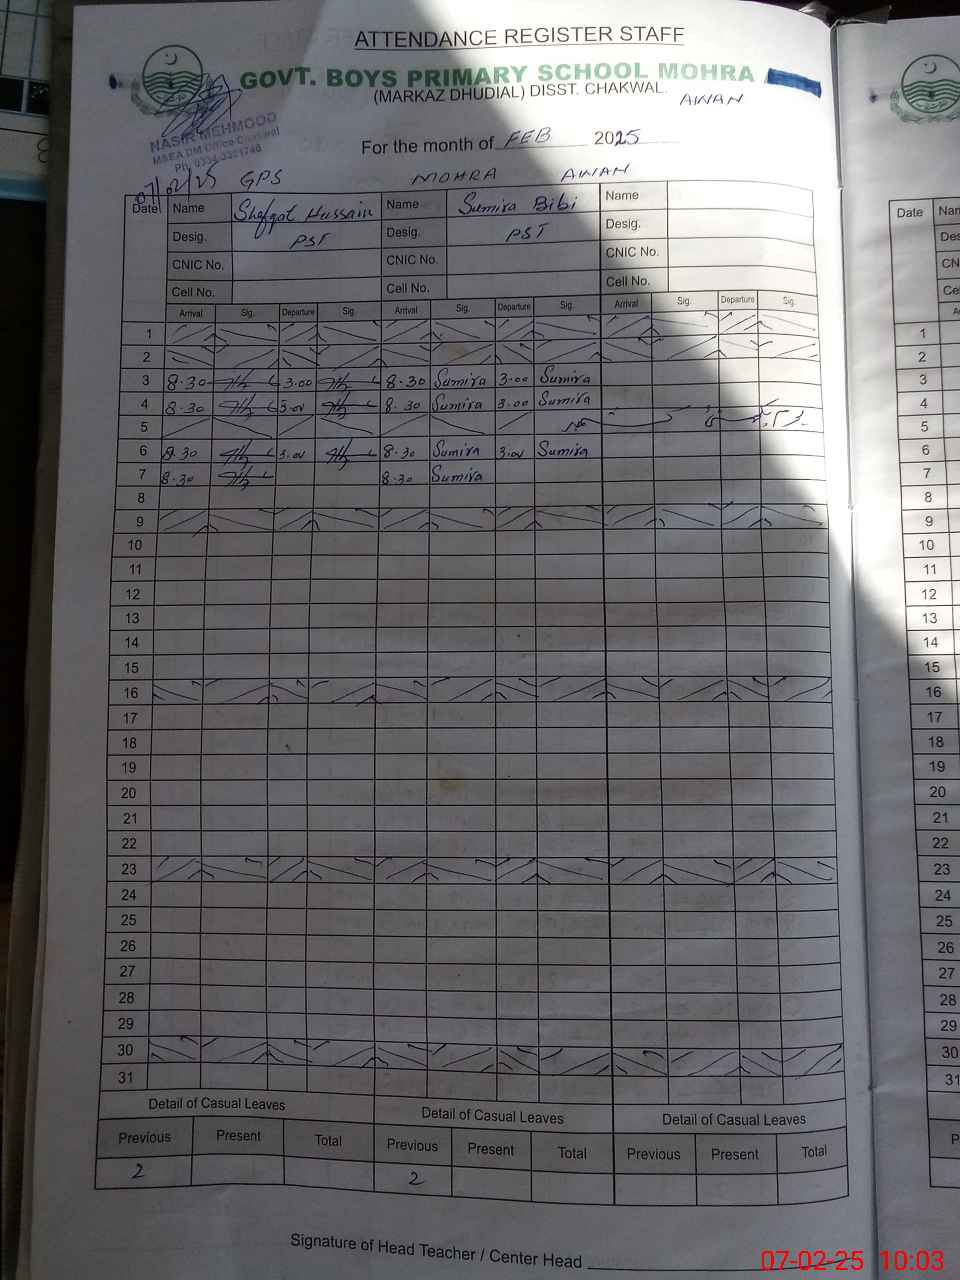 ATTENDANCE REGISTER STAFF
GOVT. BOYS PRIMARY SCHOOL MOHRA
(MARKAZ DHUDIAL) DISST. CHAKWAL.
AWAN
NASIR MEHMOOD
MSEA DM Office Chakwal
For the month of FEB 2025
07/02/25 GPS MOHRA AWAN
Date Name Shafqat Hussain Name Sumira Bibi Name
Desig. PST Desig. PST Desig.
CNIC No. CNIC No. CNIC No.
Cell No. Cell No. Cell No.
Arrival Sig. Departure Sig. Arrival Sig. Departure Sig. Arrival Sig. Departure Sig.
1
2
3 8.30 3.00 8.30 Sumira 3.00 Sumira
4 8.30 3.00 8.30 Sumira 3.00 Sumira
5
6 8.30 3.00 8.30 Sumira 3.00 Sumira
7 8.30 8.30 Sumira
8
9
10
11
12
13
14
15
16
17
18
19
20
21
22
23
24
25
26
27
28
29
30
31
Detail of Casual Leaves Detail of Casual Leaves Detail of Casual Leaves
Previous Present Total Previous Present Total Previous Present Total
2 2
Signature of Head Teacher / Center Head
07-02-25 10:03
Date
1
2
3
4
5
6
7
8
9
10
11
12
13
14
15
16
17
18
19
20
21
22
23
24
25
26
27
28
29
30
31